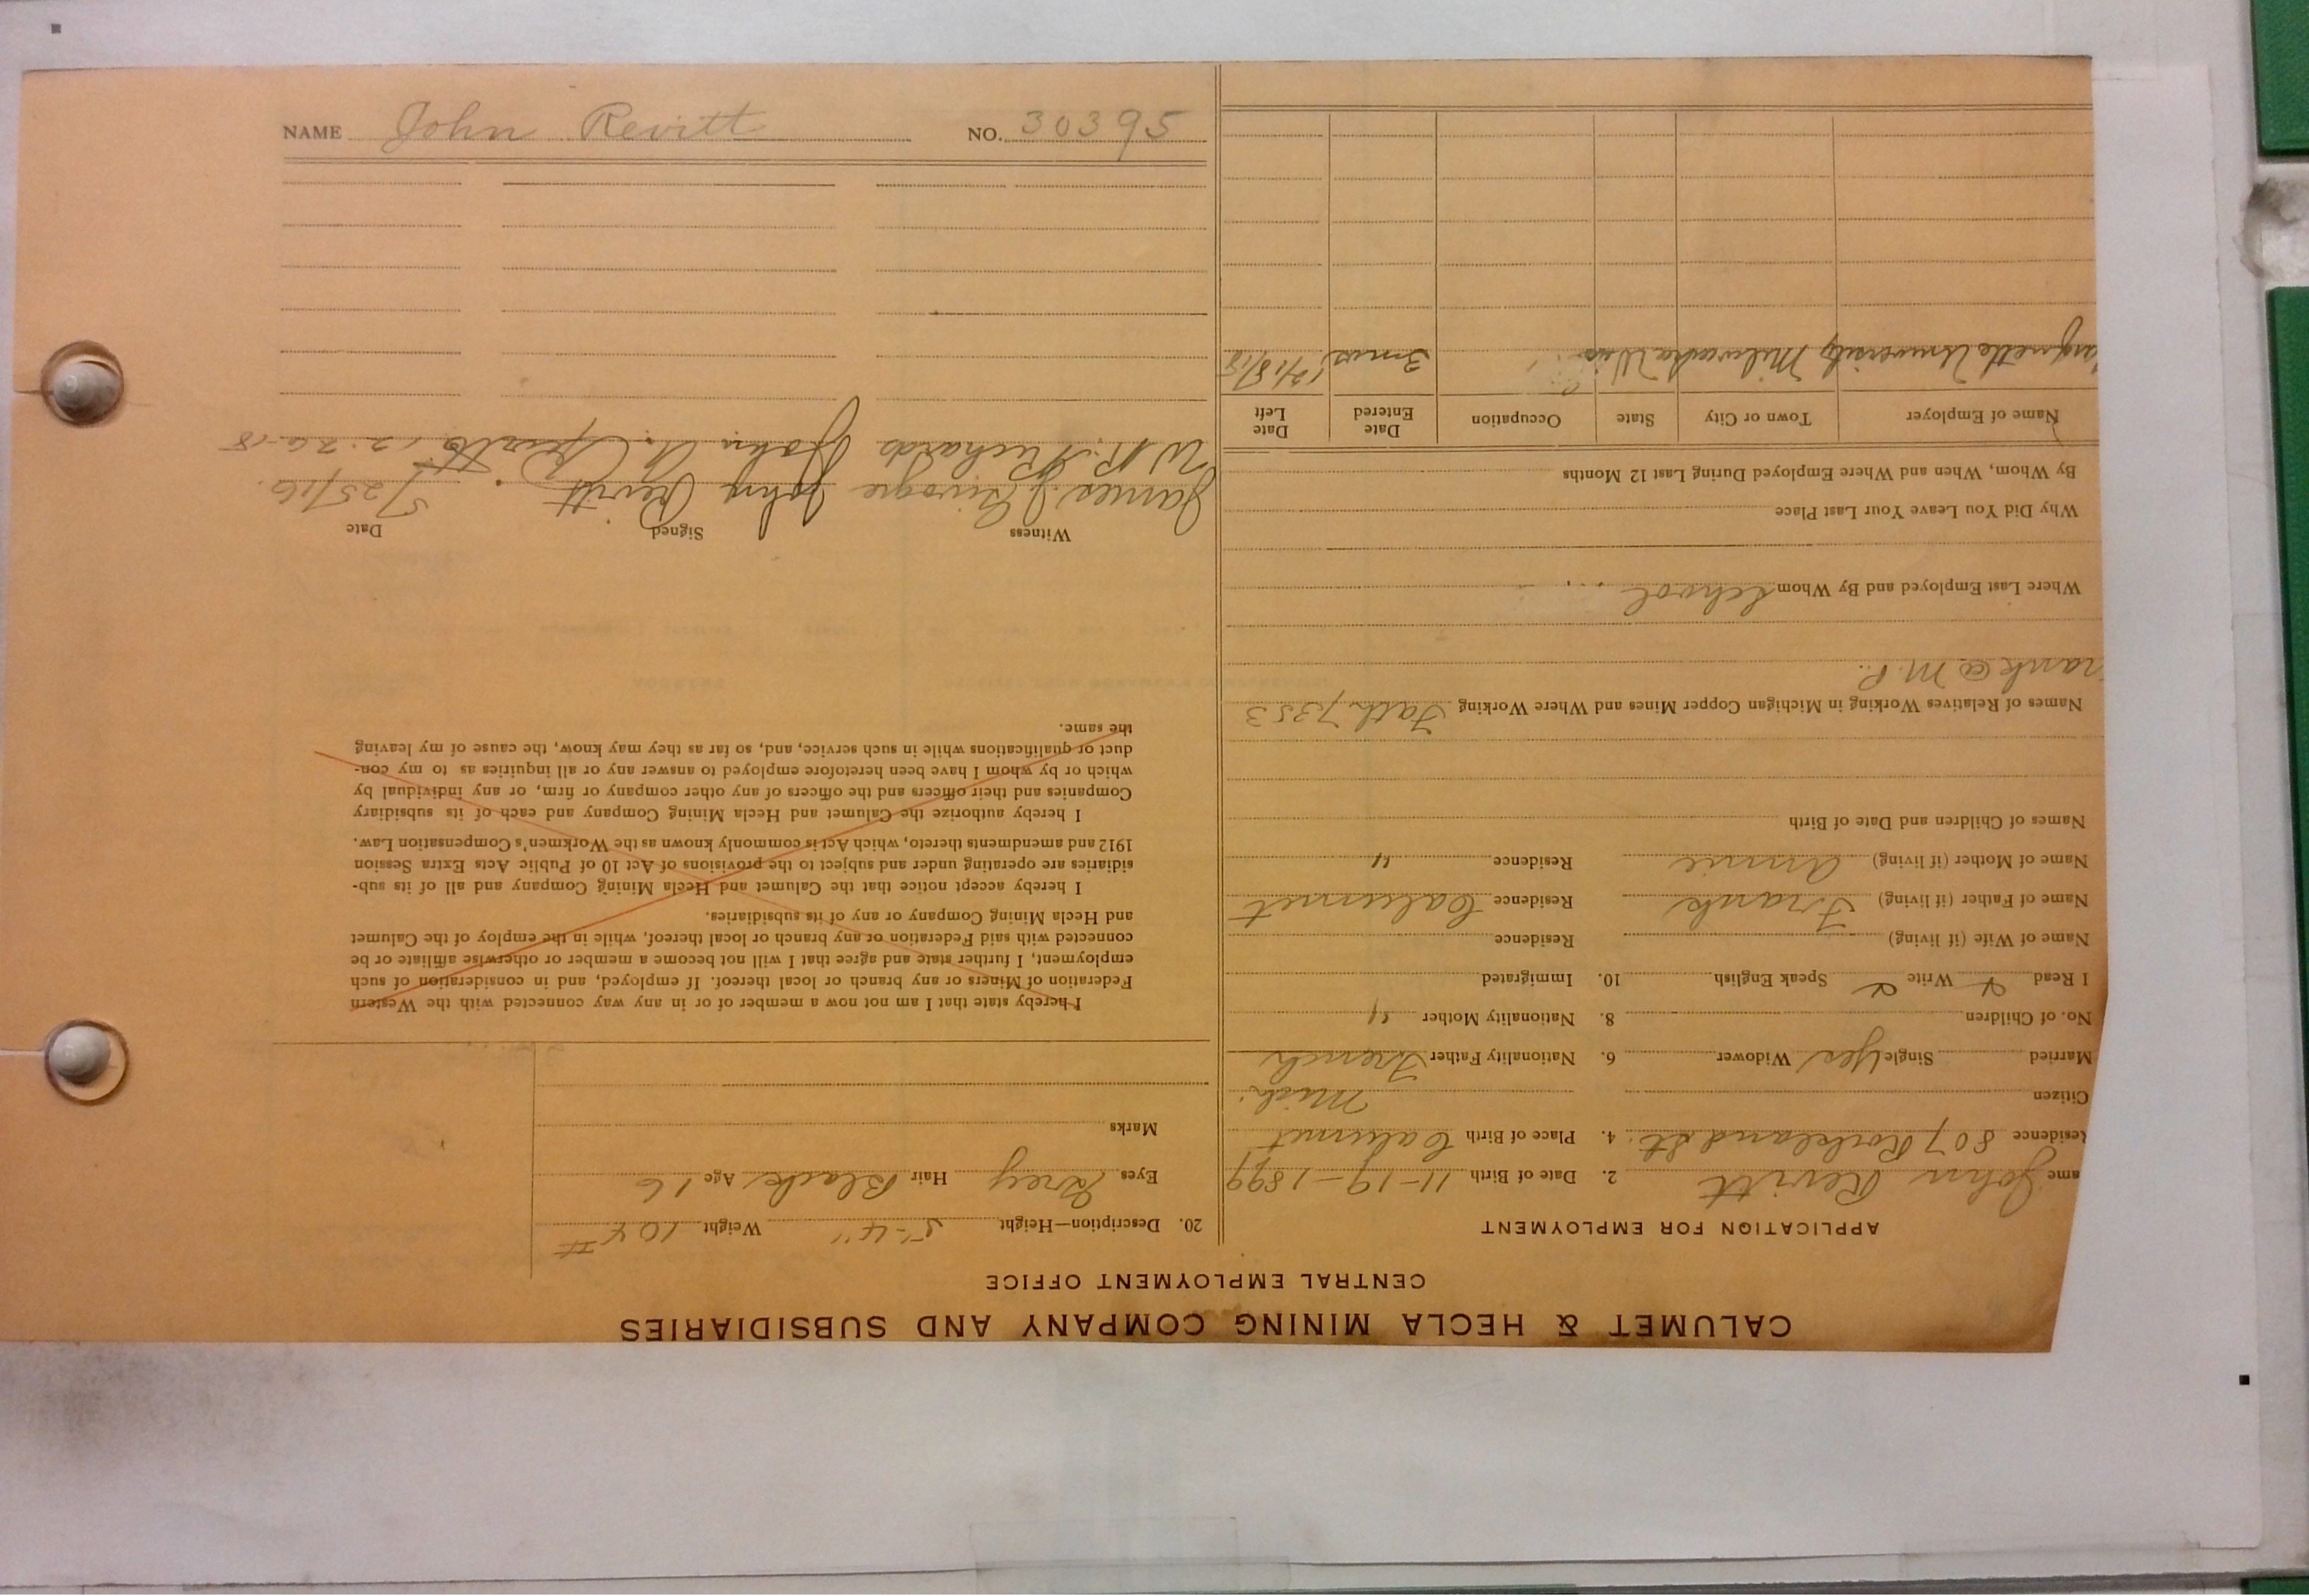 CALUMET & HECLA MINING COMPANY AND SUBSIDIARIES
CENTRAL EMPLOYMENT OFFICE
APPLICATION FOR EMPLOYMENT
ame John Revitt 2. Date of Birth 11-19-1899
Residence 807 Rockland St. 4. Place of Birth Calumet
Citizen Mich.
Married Single Yes Widower 6. Nationality Father French
No. of Children 8. Nationality Mother "
I Read Write Speak English 10. Immigrated
Name of Wife (if living) Residence
Name of Father (if living) Frank Residence Calumet
Name of Mother (if living) Annie Residence "
Names of Children and Date of Birth
Names of Relatives Working in Michigan Copper Mines and Where Working Fath 7353
rank @ M. P.
Where Last Employed and By Whom School
Why Did You Leave Your Last Place
By Whom, When and Where Employed During Last 12 Months
Name of Employer Town or City State Occupation Date Entered Date Left
arquette University Milwaukee Wis 3 mos 12/18/18
20. Description—Height 5-4" Weight 104 #
Eyes Grey Hair Black Age 16
Marks
I hereby state that I am not now a member of or in any way connected with the Western
Federation of Miners or any branch or local thereof. If employed, and in consideration of such
employment, I further state and agree that I will not become a member or otherwise affiliate or be
connected with said Federation or any branch or local thereof, while in the employ of the Calumet
and Hecla Mining Company or any of its subsidiaries.
I hereby accept notice that the Calumet and Hecla Mining Company and all of its sub-
sidiaries are operating under and subject to the provisions of Act 10 of Public Acts Extra Session
1912 and amendments thereto, which Act is commonly known as the Workmen's Compensation Law.
I hereby authorize the Calumet and Hecla Mining Company and each of its subsidiary
Companies and their officers and the officers of any other company or firm, or any individual by
which or by whom I have been heretofore employed to answer any or all inquiries as to my con-
duct or qualifications while in such service, and, so far as they may know, the cause of my leaving
the same.
Witness Signed Date
James J. John Revitt 5/25/16.
W. R. Richards John A. 12-26-18
NAME John Revitt NO. 30395